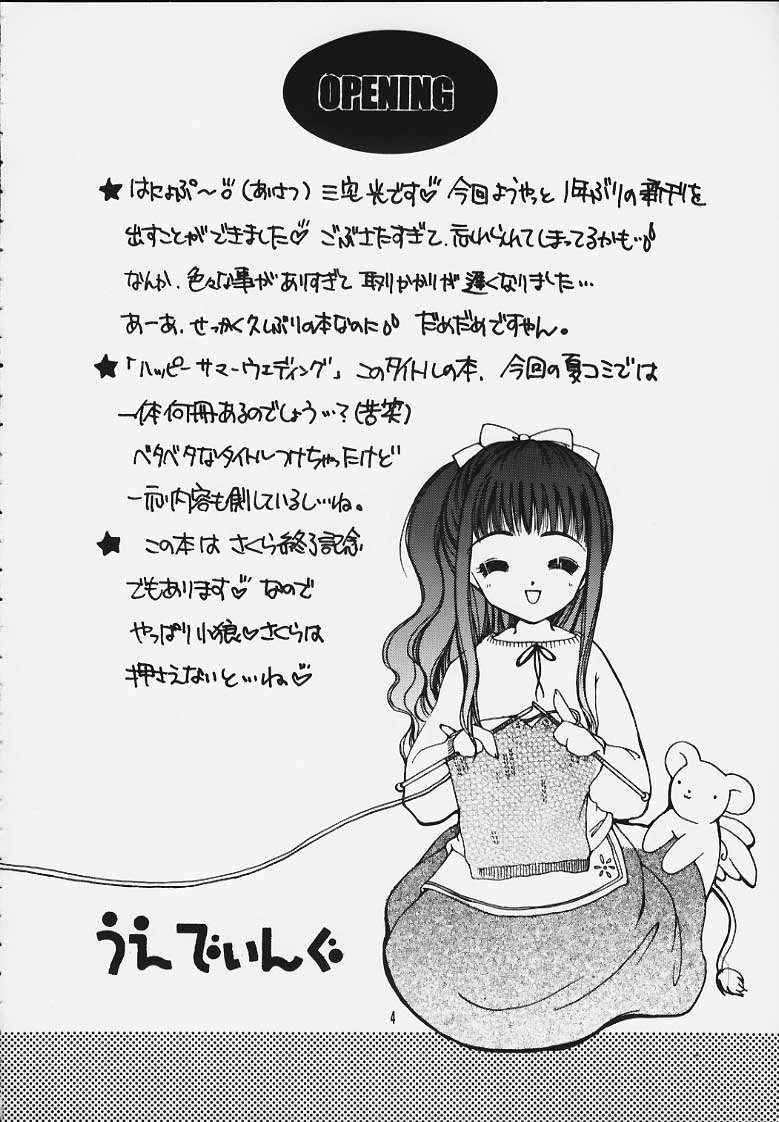 OPENING
★ はにょぷ〜 (あいさつ) 三宅光です♡ 今回ようやっと 1年ぶりの新刊を
出すことができました♡ ごぶさたすぎて、忘れられてしまってるかも…
なんか、色々な事がありすぎて 取りかかりが 遅くなりました…
あーあ、せっかく久しぶりの本なのに だめだめですやん。
★ 「ハッピーサマーウエディング」このタイトルの本、今回の夏コミでは
一体何冊あるのでしょう…?(苦笑)
ベタベタなタイトルつけちゃったけど
一応内容も即しているし…ね。
★ この本は さくら終了記念
でもあります♡ なので
やっぱり小狼♡さくらは
押さえないと…ね♡
うえでぃんぐ
4